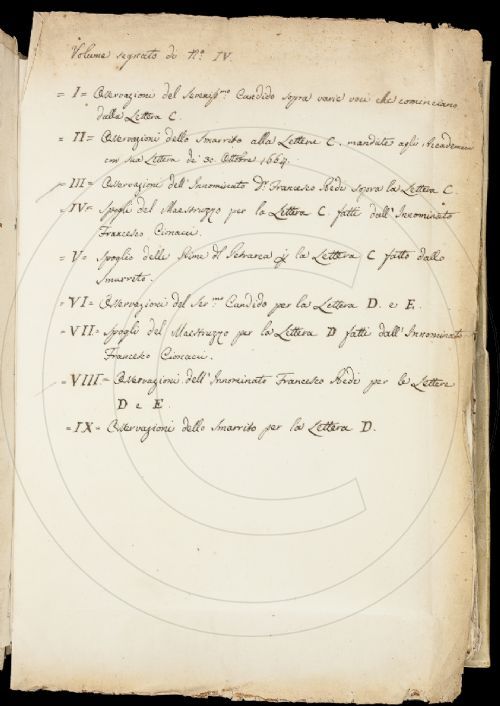 Volume segnato di N.º IV.
= I = Osservazioni del Sereniss.mo Candido sopra varie voci che cominciano
dalla Lettera C.
= II = Osservazioni dello Smarrito alla Lettera C. mandate agli Accademici
con sua Lettera de' 30 Ottobre 1664.
= III = Osservazioni dell' Innominato Dr. Francesco Redi sopra la Lettera C.
= IV = Spogli del Maestruzzo per la Lettera C. fatti dall' Innominato
Francesco Cionacci.
= V = Spoglio delle Rime del Petrarca per la Lettera C fatto dallo
Smarrito.
= VI = Osservazioni del Ser.mo Candido per la Lettera D. e E.
= VII = Spogli del Maestruzzo per la Lettera D fatti dall' Innominato
Francesco Cionacci.
= VIII = Osservazioni dell' Innominato Francesco Redi per le Lettere
D e E.
= IX = Osservazioni dello Smarrito per la Lettera D.